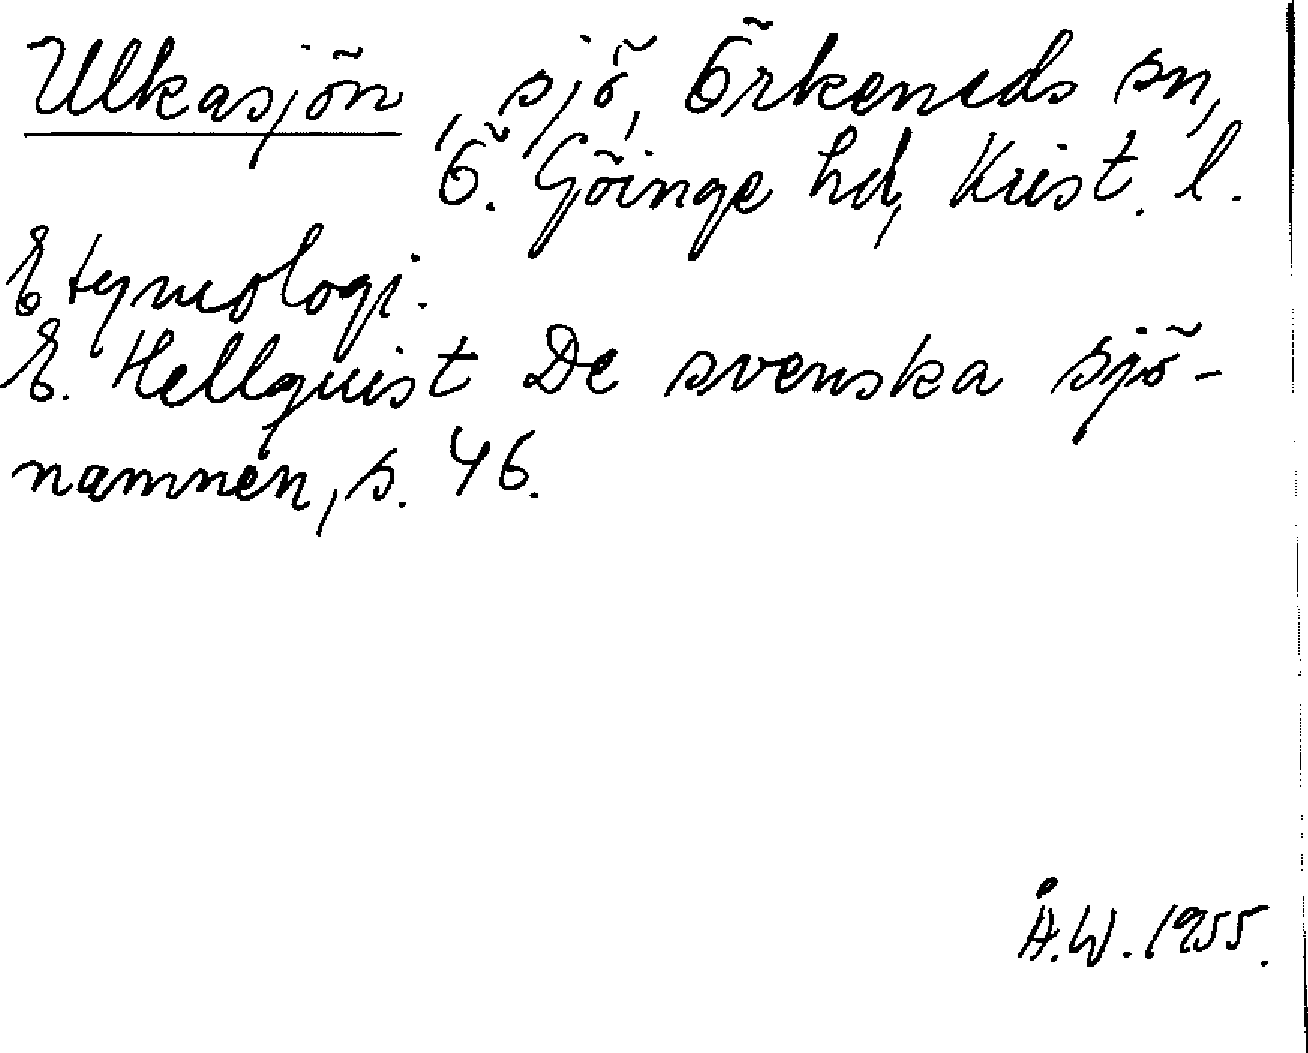 Ulkasjön, sjö, Örkeneds sn,
Ö. Göinge hd, Krist. l.
Etymologi.
E. Hellquist De svenska sjö-
namnen, s. 46.
Å.W. 1955.